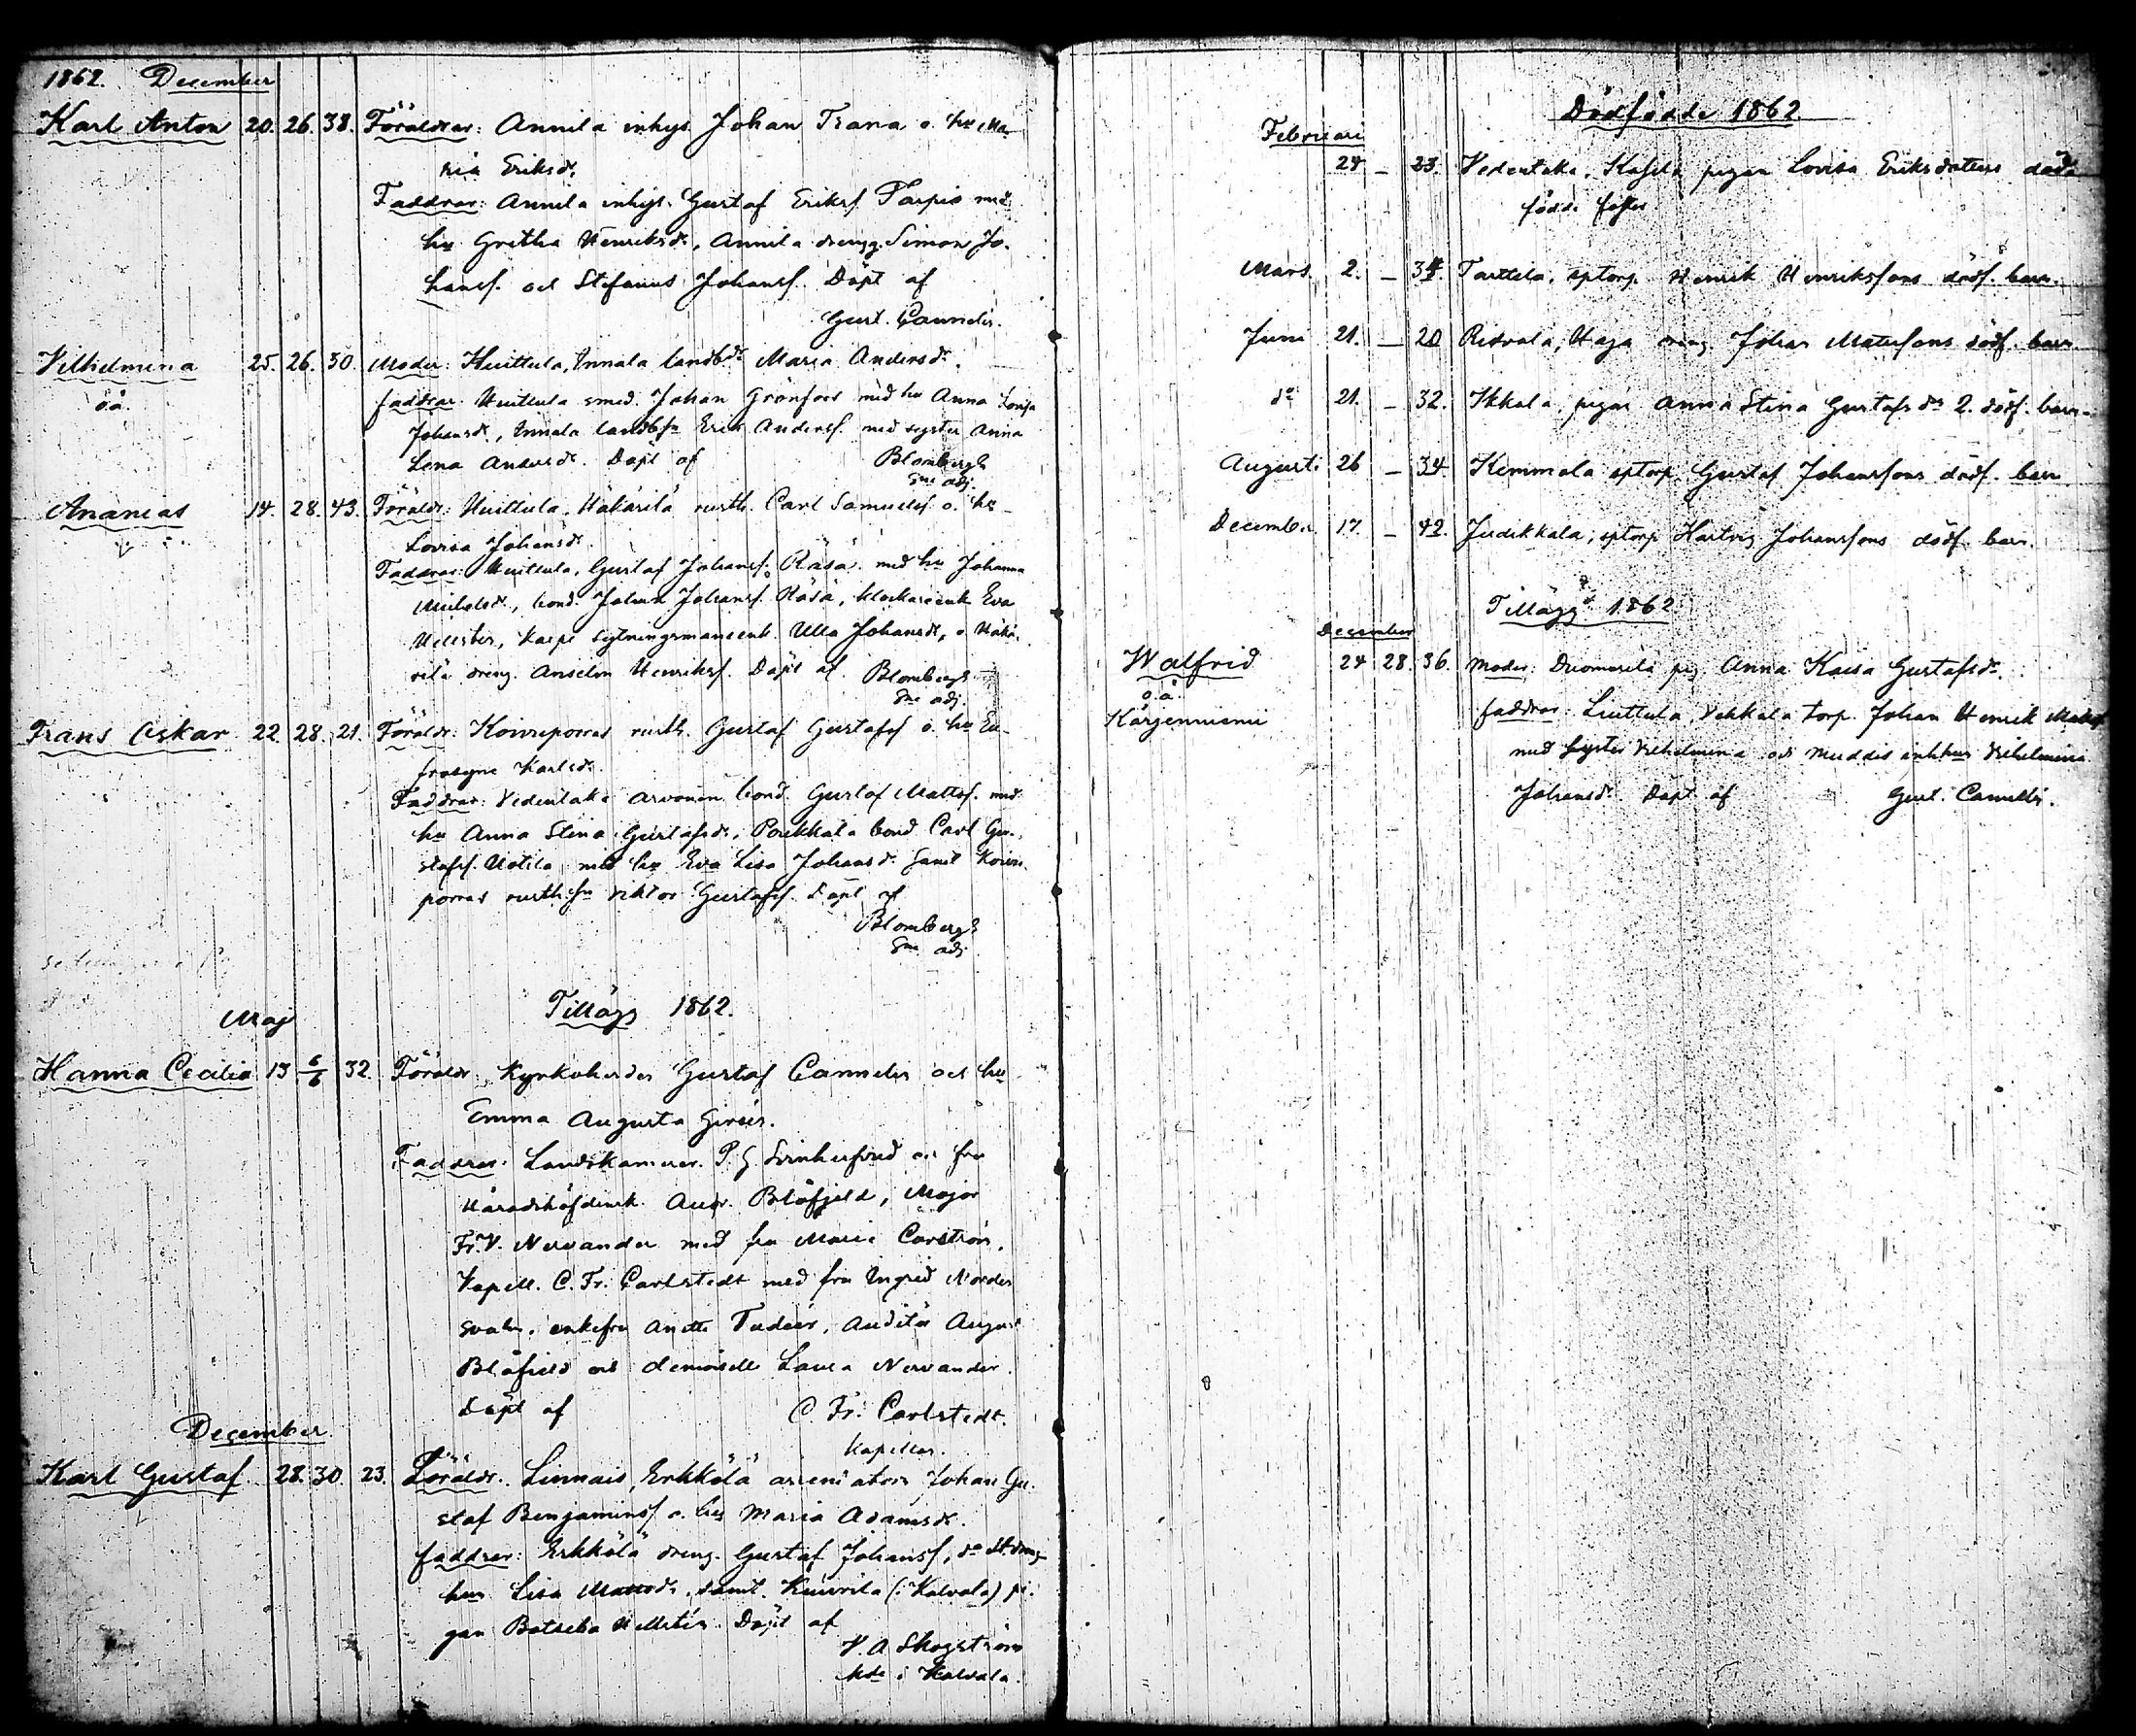 1862. December
Karl Anton 20. 26. 38. Föräldrar: Annila inhys. Johan Trana o. hu Ma-
ria Eriksdr.
Faddrar: Annila inhys. Gustaf Eriksf. Tarpio med
hu Gretha Henriksdr, Annila dreng. Simon Jo-
hansf. och Stefanus Johansf. Döpt af
Gust. Cannelin.
Vilhelmina 25. 26. 30. Moder: Huittula, Innala landbdr Maria Andersdr.
o.ä. faddrar. Huittula smed. Johan Grönfors med hu Anna Lovisa
Johansdr, Innala landbsn Erik Andersf. med syster Anna
Lena Andersdr. Döpt af Blomberg
Sne adj.
Ananias 14. 28. 43. Föräldr: Huittula, Häkärilä rusth. Carl Samuelsf o. hu
Lovisa Johansdr.
Faddrar: Huittula, Gustaf Johansf. Räsä med hu Johanna
Michelsdr., bond. Johan Johansf. Räsä, klockareenk. Eva
Hellstén, Karpe sytningsmansenk. Ulla Johansdr, o. Häkä-
rilä dreng. Anselm Henriksf. Döpt af. Blomberg
Sne adj.
Frans Oskar 22. 28. 21. Föräldr: Koivuporras rusth. Gustaf Gustafsf o. hu Eu-
frosyne Karlsdr.
Faddrar: Vedentaka Arvonen bond. Gustaf Mattsf. med
hu Anna Stina Gustafsdr., Ponkkala bond. Carl Gu-
stafsf. Uotila med hu Eva Lisa Johansdr. samt Koivu-
porras rusth.sn Viktor Gustafsf. Döpt af
Blomberg
Sne adj.
Tillägg 1862.
Maj
Hanna Cecilia 13 6/6 32. Föräldr: Kyrkoherden Gustaf Cannelin och hu
Emma Augusta Girsén.
Faddrar: Landskamerer. P. G. Svinhufvud och fru
Häradshöfdinsk. Aug. Blåfjeld, Major
Fr. V. Nervander med fru Maria
Kapell. C. Fr. Carlstedt med fru Ingrid Norden
svahn, enkefru Anette Tudeer, Auditör August
Blåfield och demoiselle Laura Nervander.
Döpt af C. Fr. Carlstedt.
Kapellan.
December
Karl Gustaf 28. 30. 23. Föräldr. Linnais, Erkkölä arrendatorn Johan Gu-
staf Benjaminsf o. hu Maria Adamsdr.
faddrar: Erkkölä dreng. Gustaf Johansf, do st.dreng
hu Lisa Mattsdr, samt. Kuurila (i Kalvola) pi-
gan Batseba Hellstén. Döpt af
V. A Skogström
i Kalvola.
Dödfödde 1862
Februari
24 – 23. Vedentaka, pigan Lovisa Eriksdotters död
födde foster.
Mars. 2. – 34. Tarttila, sptorp. Henrik Henriksfons dödf. barn.
Juni 21. – 20 Ridvala, Haga dreng Johan Matsfons dödf. barn
do 21. – 32. Ikkala, pigan Anna Stina Gustafsdrs 2. dödf. barn
Augusti 26 – 34 Kemmola sptorp. Gustaf Johansfons dödf. barn
December 17. – 42. Judikkala, sptorp Hartvig Johansfons dödf. barn.
Tillägg 1862
December
Walfrid 24 28. 36. Moder: pig. Anna Kaisa Gustafsdr.
o.ä.
Kärjenniemi faddrar: Liuttula, Vehkala torp. Johan Henrik Matsf
med syster Vilhelmina och Muddis inhhus Vilhelmina
Johansdr. Döpt af Gust. Cannelin.